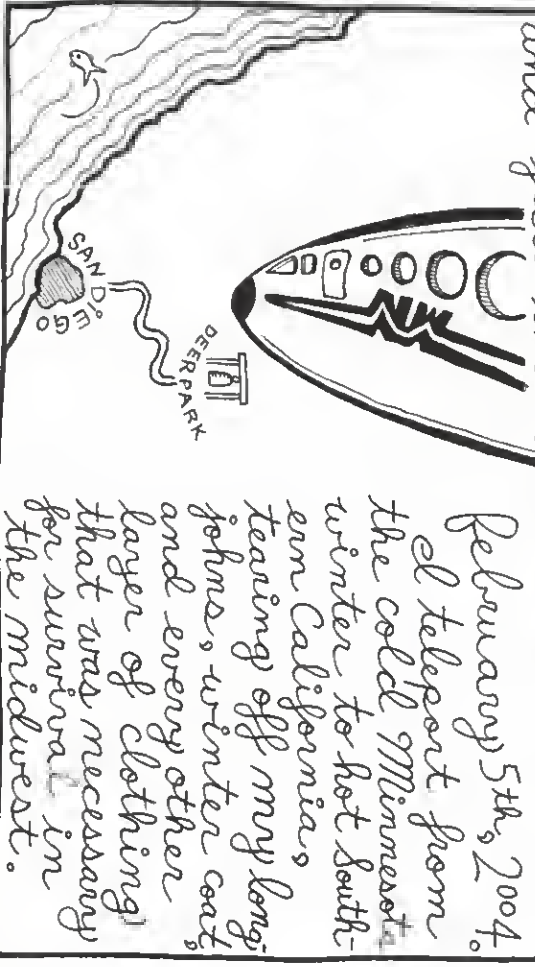 and
SAN DiEGO
DEER PARK
February 5th, 2004.
I teleport from
the cold Minnesota
winter to hot South-
ern California,
tearing off my long-
johns, winter coat,
and every other
layer of clothing
that was necessary
for survival in
the midwest.